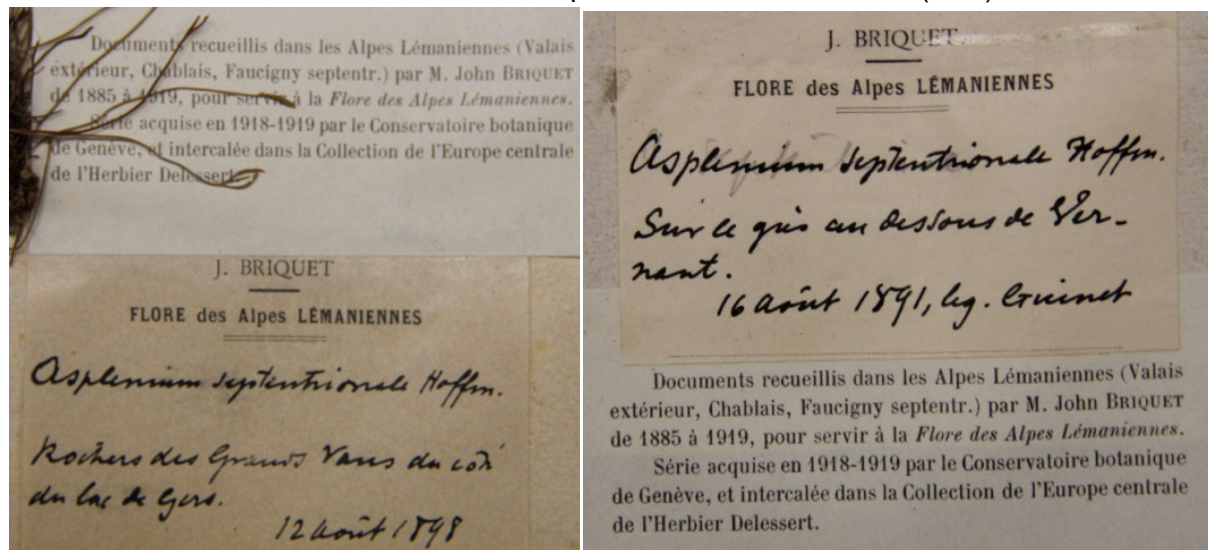 Documents recueillis dans les Alpes Lémaniennes (Valais
extérieur, Chablais, Faucigny septentr.) par M. John BRIQUET
de 1885 à 1919, pour servir à la Flore des Alpes Lémaniennes.
Série acquise en 1918-1919 par le Conservatoire botanique
de Genève, et intercalée dans la Collection de l'Europe centrale
de l'Herbier Delessert.
J. BRIQUET
FLORE des Alpes LÉMANIENNES
Asplenium septentrionale Hoffm.
Rochers des Grands Vans du côté
du lac de Gers.
12 août 1898
J. BRIQUET
FLORE des Alpes LÉMANIENNES
Asplenium septentrionale Hoffm.
Sur le grès au dessous de Ver-
nant.
16 août 1891, leg. Guinet
Documents recueillis dans les Alpes Lémaniennes (Valais
extérieur, Chablais, Faucigny septentr.) par M. John BRIQUET
de 1885 à 1919, pour servir à la Flore des Alpes Lémaniennes.
Série acquise en 1918-1919 par le Conservatoire botanique
de Genève, et intercalée dans la Collection de l'Europe centrale
de l'Herbier Delessert.